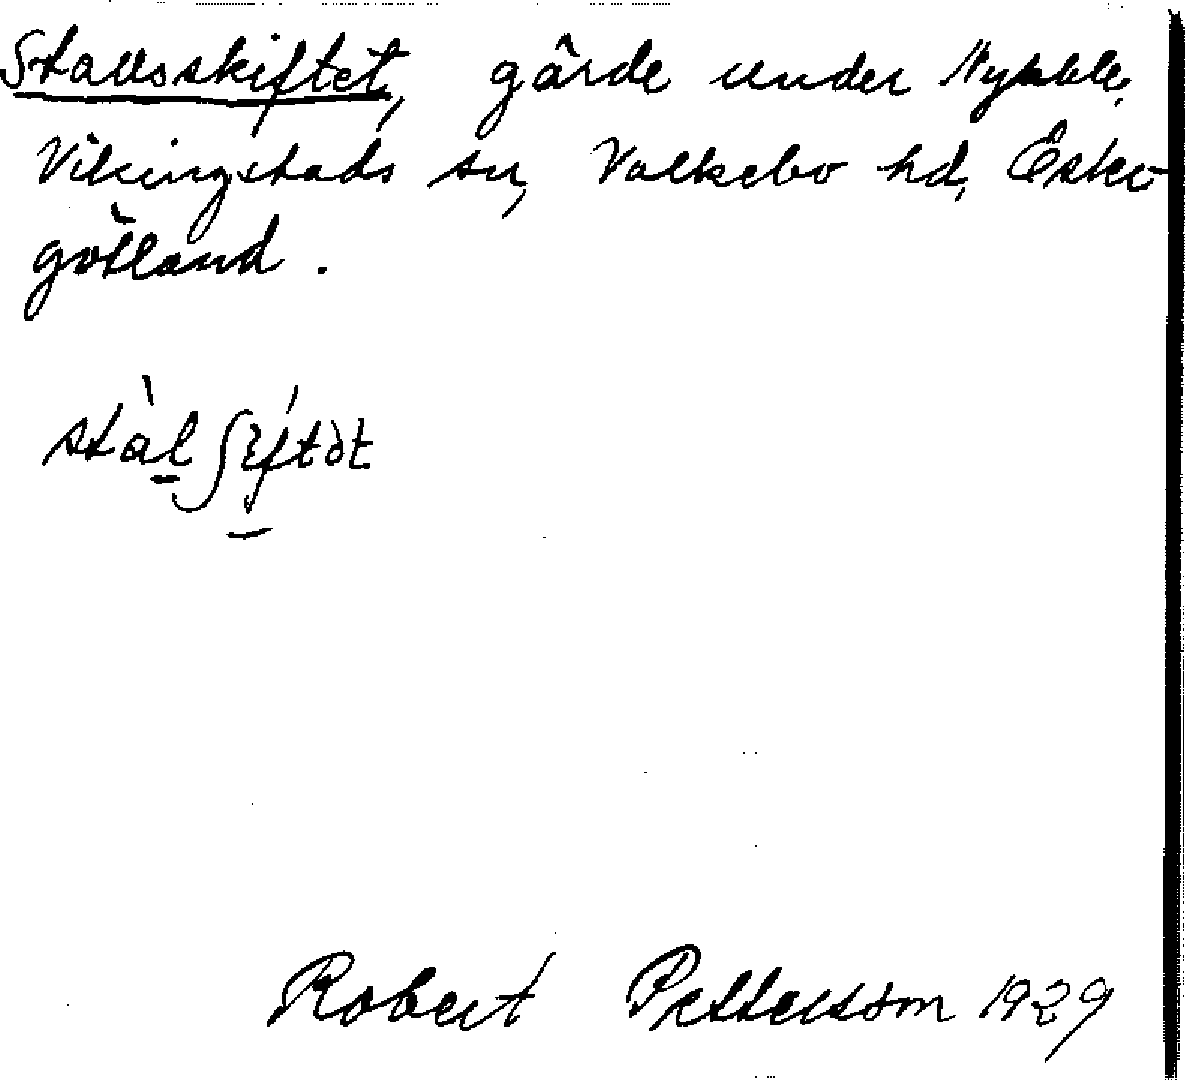 Stallsskiftet, gärde under Nykvble,
Vikingstads sn, Valkebo hd, Öster
götland.
stàlʃiftət
Robert Pettersson 1929